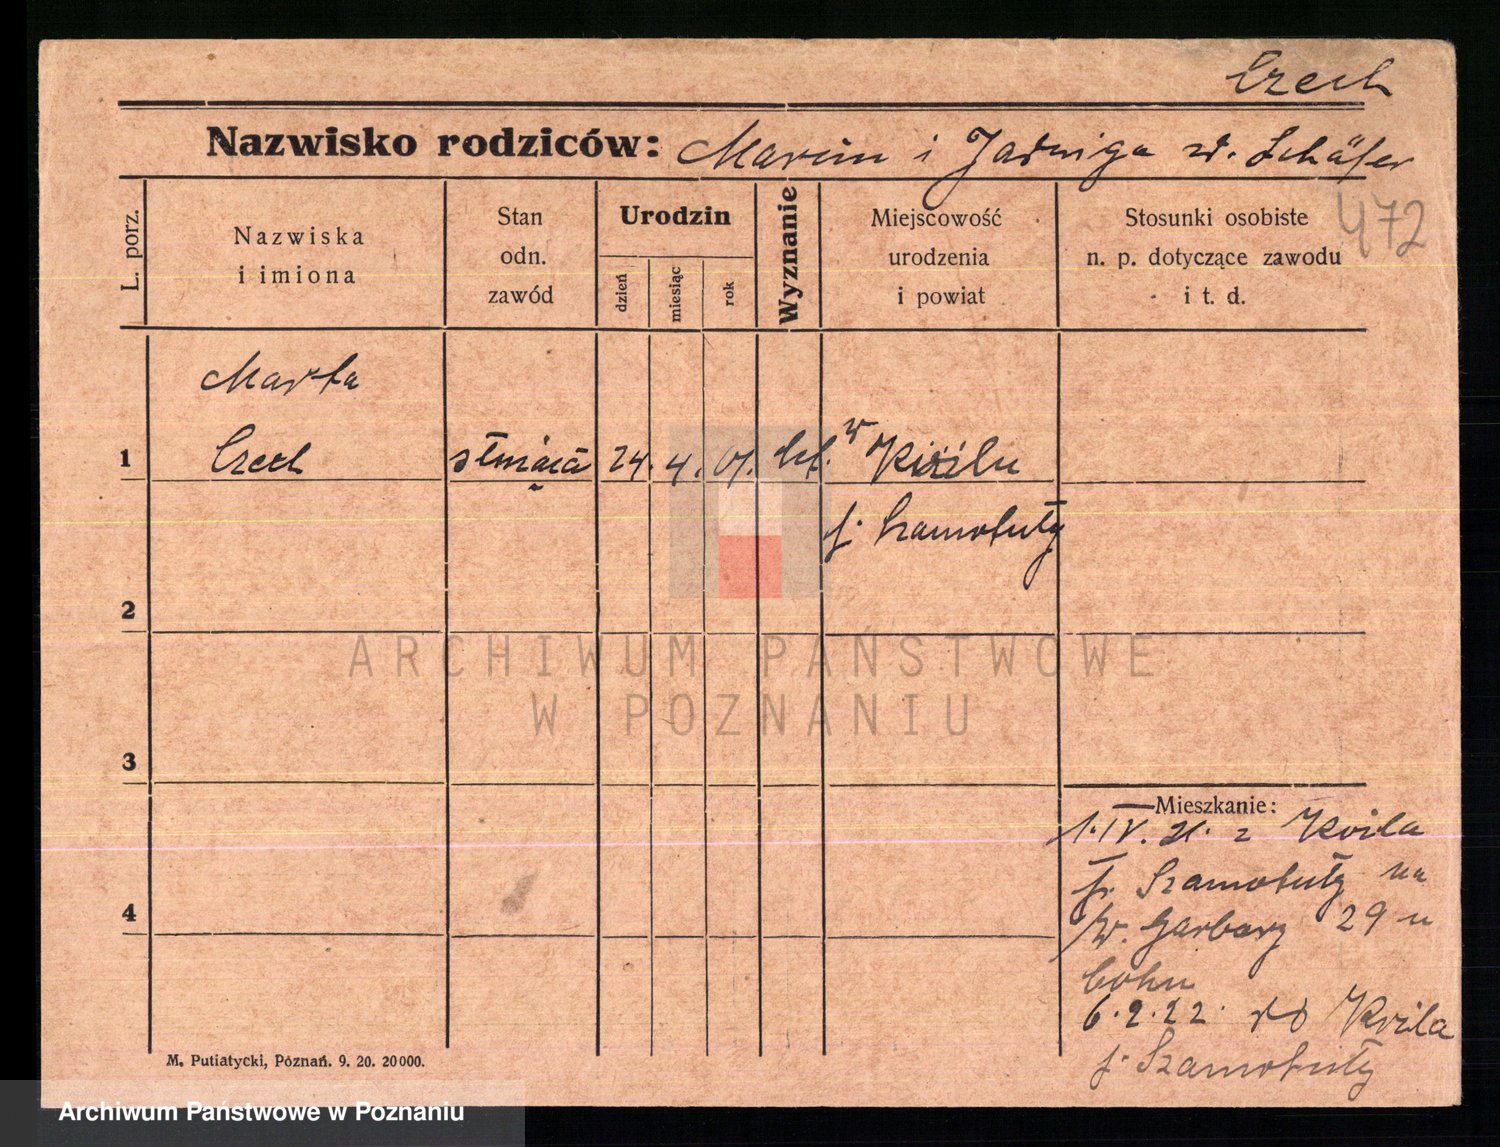 Czech
Nazwisko rodziców: Marcin i Jadwiga zd. Schäfer
472
L. porz.
Nazwiska
i imiona
Stan
odn.
zawód
Urodzin
dzień
miesiąc
rok
Wyznanie
Miejscowość
urodzenia
i powiat
Stosunki osobiste
n. p. dotyczące zawodu
i t. d.
Marta
1 Czech służąca 24. 4. 01. w
p. Szamotuły
2
ARCHIWUM PAŃSTWOWE
W POZNANIU
3
4
Mieszkanie:
1. IV. 21. z Kwila
p. Szamotuły na
W. Garbary 29 u
6.2.22. do Kwila
p. Szamotuły
M. Putiatycki, Poznań. 9. 20. 20000.
Archiwum Państwowe w Poznaniu